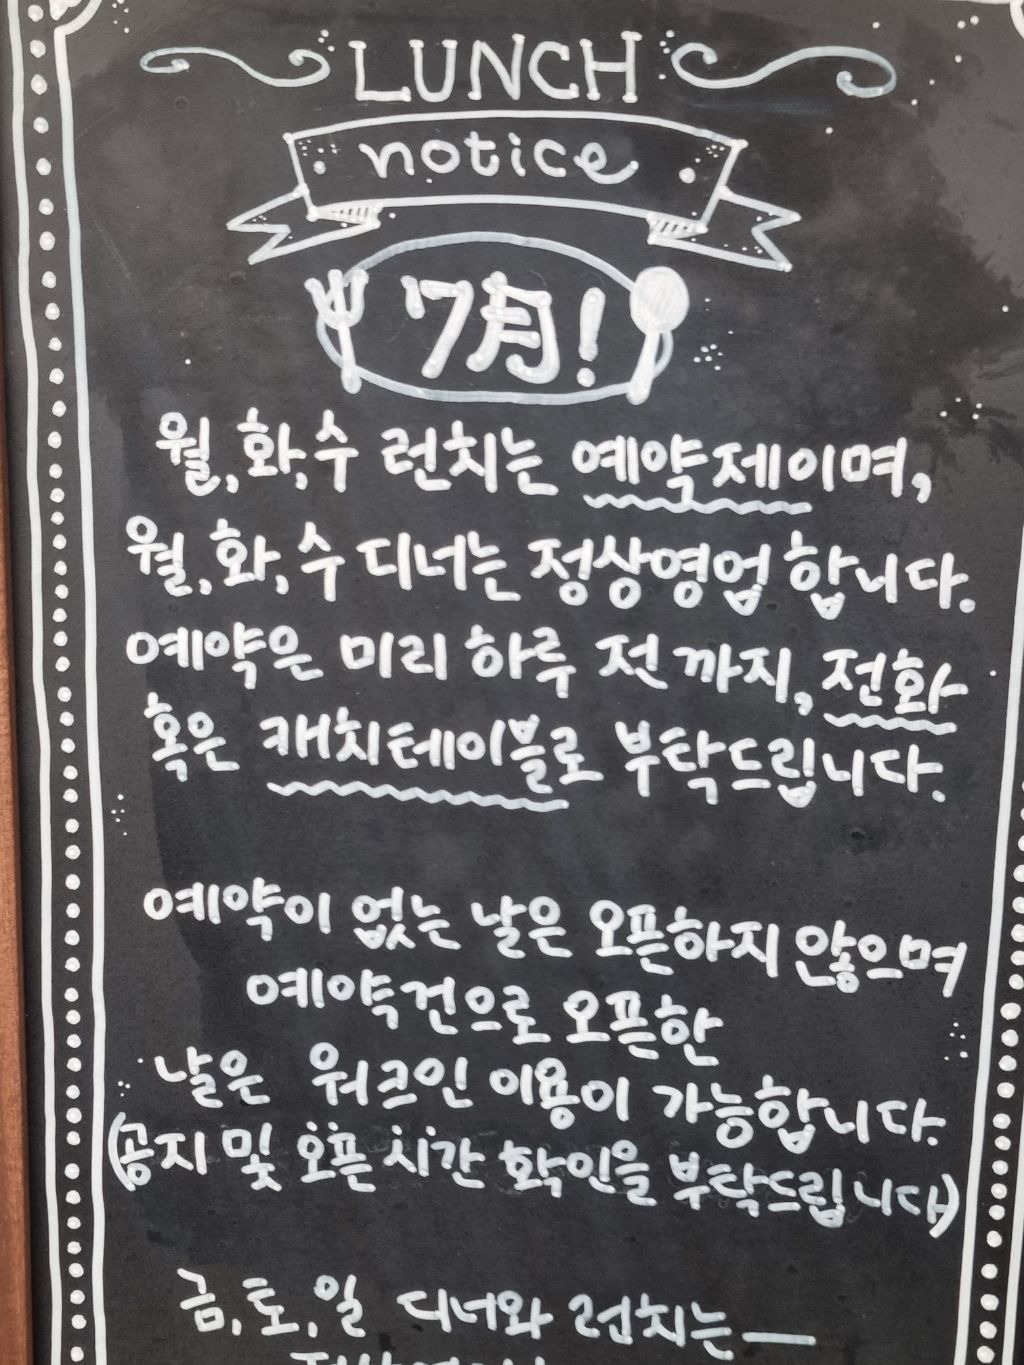 LUNCH
notice
7月!
월,화,수 런치는 예약제이며,
월,화,수 디너는 정상영업 합니다.
예약은 미리 하루 전 까지, 전화
혹은 캐치테이블로 부탁드립니다.
예약이 없는 날은 오픈하지 않으며
예약건으로 오픈한
날은 워크인 이용이 가능합니다.
(공지 및 오픈 시간 확인을 부탁드립니다)
금,토,일 디너와 런치는—